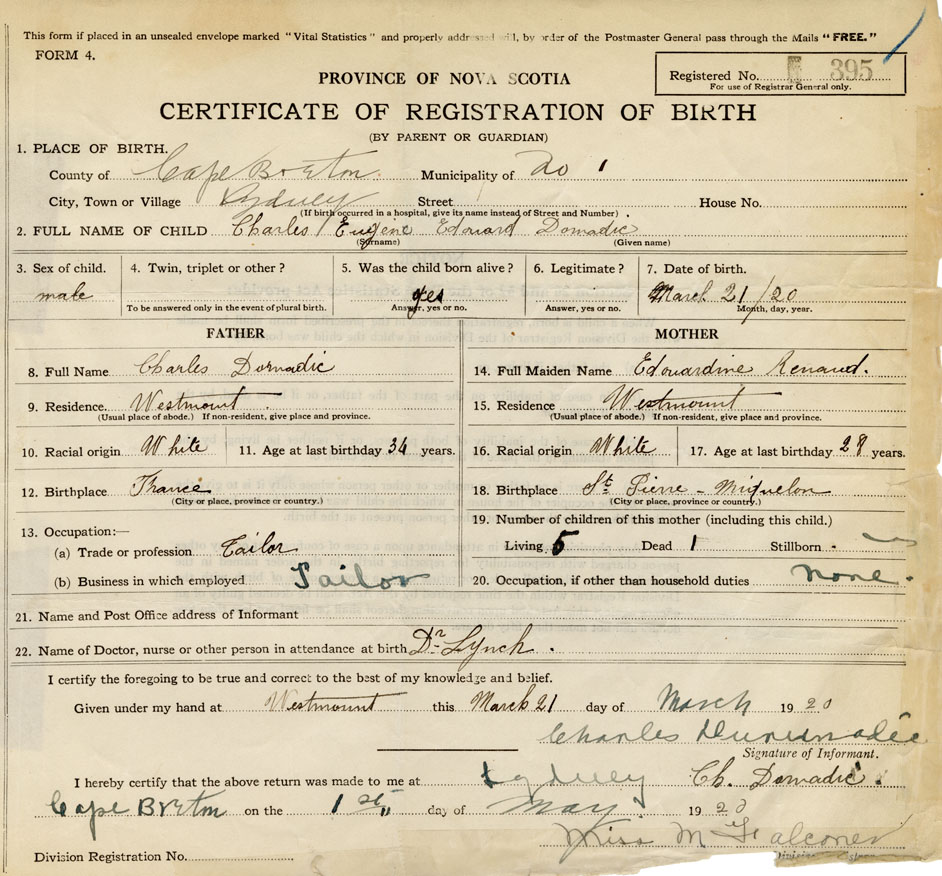 This form if placed in an unsealed envelope marked "Vital Statistics" and properly addressed will, by order of the Postmaster General pass through the Mails "FREE."
FORM 4.
Registered No. 395
For use of Registrar General only.
PROVINCE OF NOVA SCOTIA
CERTIFICATE OF REGISTRATION OF BIRTH
(BY PARENT OR GUARDIAN)
1. PLACE OF BIRTH.
County of Cape Breton Municipality of
City, Town or Village Sydney Street House No.
(If birth occurred in a hospital, give its name instead of Street and Number)
2. FULL NAME OF CHILD Charles Eugene Edouard Domadic
(Surname) (Given name)
3. Sex of child. 4. Twin, triplet or other? 5. Was the child born alive? 6. Legitimate? 7. Date of birth.
male yes March 21/20
To be answered only in the event of plural birth. Answer, yes or no. Answer, yes or no. Month, day, year.
FATHER MOTHER
8. Full Name Charles Domadic 14. Full Maiden Name Edouardine Renaud.
9. Residence. Westmount 15. Residence Westmount
(Usual place of abode.) If non-resident, give place and province. (Usual place of abode.) If non-resident, give place and province.
10. Racial origin White 11. Age at last birthday 34 years. 16. Racial origin White 17. Age at last birthday 28 years.
12. Birthplace France 18. Birthplace St Pierre - Miquelon
(City or place, province or country.) (City or place, province or country.)
13. Occupation:— 19. Number of children of this mother (including this child.)
(a) Trade or profession Tailor Living 5 Dead 1 Stillborn
(b) Business in which employed Tailor 20. Occupation, if other than household duties none.
21. Name and Post Office address of Informant
22. Name of Doctor, nurse or other person in attendance at birth Dr Lynch.
I certify the foregoing to be true and correct to the best of my knowledge and belief.
Given under my hand at Westmount this March 21 day of March 1920
Charles
Signature of Informant.
I hereby certify that the above return was made to me at Sydney Ch. Domadic.
Cape Breton on the 1st day of May 1920
Miss M Falconer
Division Registration No.